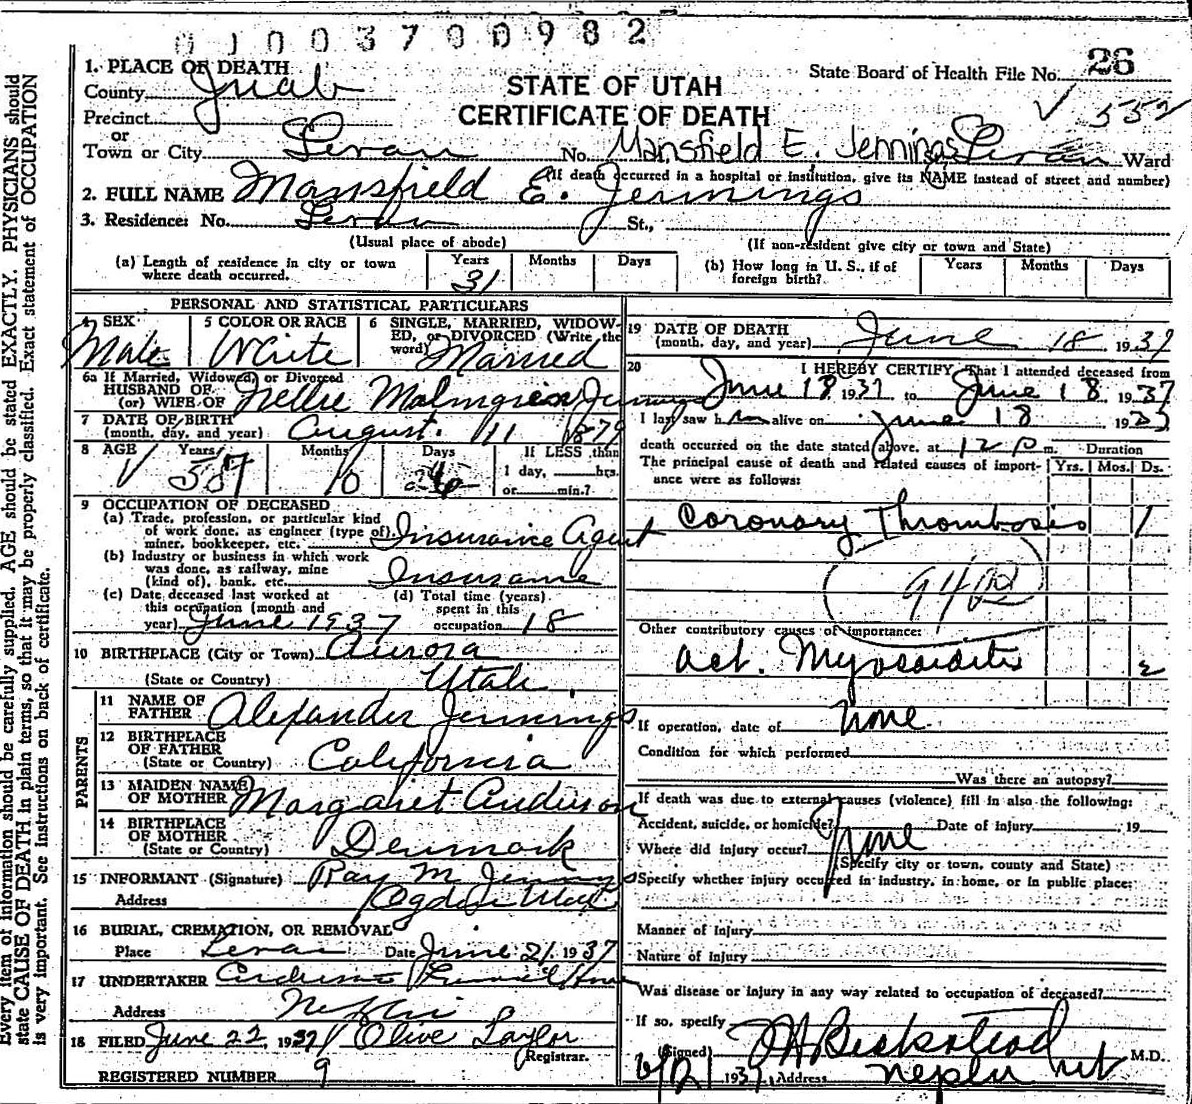 01003700982
1. PLACE OF DEATH
County Juab
STATE OF UTAH
CERTIFICATE OF DEATH
State Board of Health File No. 26
552
Precinct
or
Town or City Levan No. Mansfield E. Jennings Levan Ward
(If death occurred in a hospital or institution, give its NAME instead of street and number)
2. FULL NAME Mansfield E. Jennings
3. Residence: No. Levan St.,
(Usual place of abode) (If non-resident give city or town and State)
(a) Length of residence in city or town where death occurred. Years 31 Months Days
(b) How long in U. S., if of foreign birth? Years Months Days
PERSONAL AND STATISTICAL PARTICULARS
4 SEX Male
5 COLOR OR RACE White
6 SINGLE, MARRIED, WIDOWED, or DIVORCED (Write the word) Married
6a If Married, Widowed, or Divorced
HUSBAND OF
(or) WIFE OF Nellie Malmgren Jennings
7 DATE OF BIRTH
(month, day, and year) August 11 1879
8 AGE Years 57 Months 10 Days If LESS than
1 day, hrs.
or min.?
9 OCCUPATION OF DECEASED
(a) Trade, profession, or particular kind
of work done, as engineer (type of),
miner, bookkeeper, etc. Insurance Agent
(b) Industry or business in which work
was done, as railway, mine
(kind of), bank, etc. Insurance
(c) Date deceased last worked at
this occupation (month and
year) June 1937
(d) Total time (years)
spent in this
occupation 18
10 BIRTHPLACE (City or Town) Aurora
(State or Country) Utah.
PARENTS
11 NAME OF
FATHER Alexander Jennings
12 BIRTHPLACE
OF FATHER
(State or Country) California
13 MAIDEN NAME
OF MOTHER Margaret Anderson
14 BIRTHPLACE
OF MOTHER
(State or Country) Denmark
15 INFORMANT (Signature) Ray M. Jennings
Address Ogden Utah
16 BURIAL, CREMATION, OR REMOVAL
Place Levan Date June 21, 1937
17 UNDERTAKER Anderson Funeral Home
Address Nephi
18 FILED June 22, 1937 Olive Taylor
Registrar.
REGISTERED NUMBER 9
19 DATE OF DEATH
(month, day, and year) June 18 1937
20 I HEREBY CERTIFY, That I attended deceased from
June 18 1937 to June 18 1937
I last saw him alive on June 18 1937
death occurred on the date stated above, at 12 p m. Duration
The principal cause of death and related causes of importance were as follows: Yrs. Mos. Ds.
Coronary Thrombosis 1
Other contributory causes of importance:
act. Myocarditis 2
If operation, date of none
Condition for which performed
Was there an autopsy?
If death was due to external causes (violence) fill in also the following:
Accident, suicide, or homicide? none Date of injury 19
Where did injury occur?
(Specify city or town, county and State)
Specify whether injury occurred in industry, in home, or in public place:
Manner of Injury
Nature of injury
Was disease or injury in any way related to occupation of deceased?
If so, specify
(Signed) Beckstead M.D.
6/21 1937, Address Nephi Ut
Every item of information should be carefully supplied. AGE should be stated EXACTLY. PHYSICIANS should
state CAUSE OF DEATH in plain terms, so that it may be properly classified. Exact statement of OCCUPATION
is very important. See instructions on back of certificate.